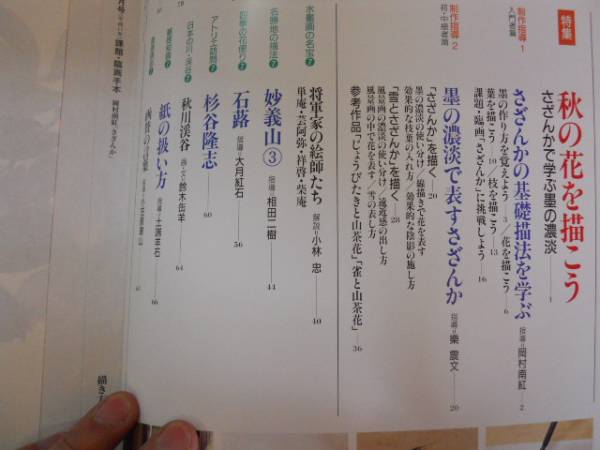 特集
秋の花を描こう
さざんかで学ぶ墨の濃淡――1
制作指導・1
入門者篇
さざんかの基礎描法を学ぶ 指導=岡村南紅――2
墨の作り方を覚えよう――3/花を描こう――6
葉を描こう――10/枝を描こう――13
課題・臨画「さざんか」に挑戦しよう――16
制作指導・2
初・中級者篇
墨の濃淡で表すさざんか 指導=樂 震文――20
「さざんか」を描く――20
墨の濃淡の使い分け/線描きで花を表す
効果的な枝葉の入れ方/効果的な陰影の施し方
「雪とさざんか」を描く――28
風景の濃淡の使い分け/遠近感の出し方
風景画の中で花を表す/雪の表し方
参考作品「じょうびたきと山茶花」「雀と山茶花」――36
水墨画の名宝
将軍家の絵師たち 解説=小林 忠――40
単庵・芸阿弥・祥啓・柴庵
名勝地の描法
妙義山③ 指導=相田二樹――44
四季の花便り
石蕗 指導=大月紅石――56
アトリエ訪問
杉谷隆志――60
日本の川・渓谷
秋川渓谷 画・文=鈴木缶羊――64
紙の扱い方
66
課題・臨画手本 岡村南紅「さざんか」